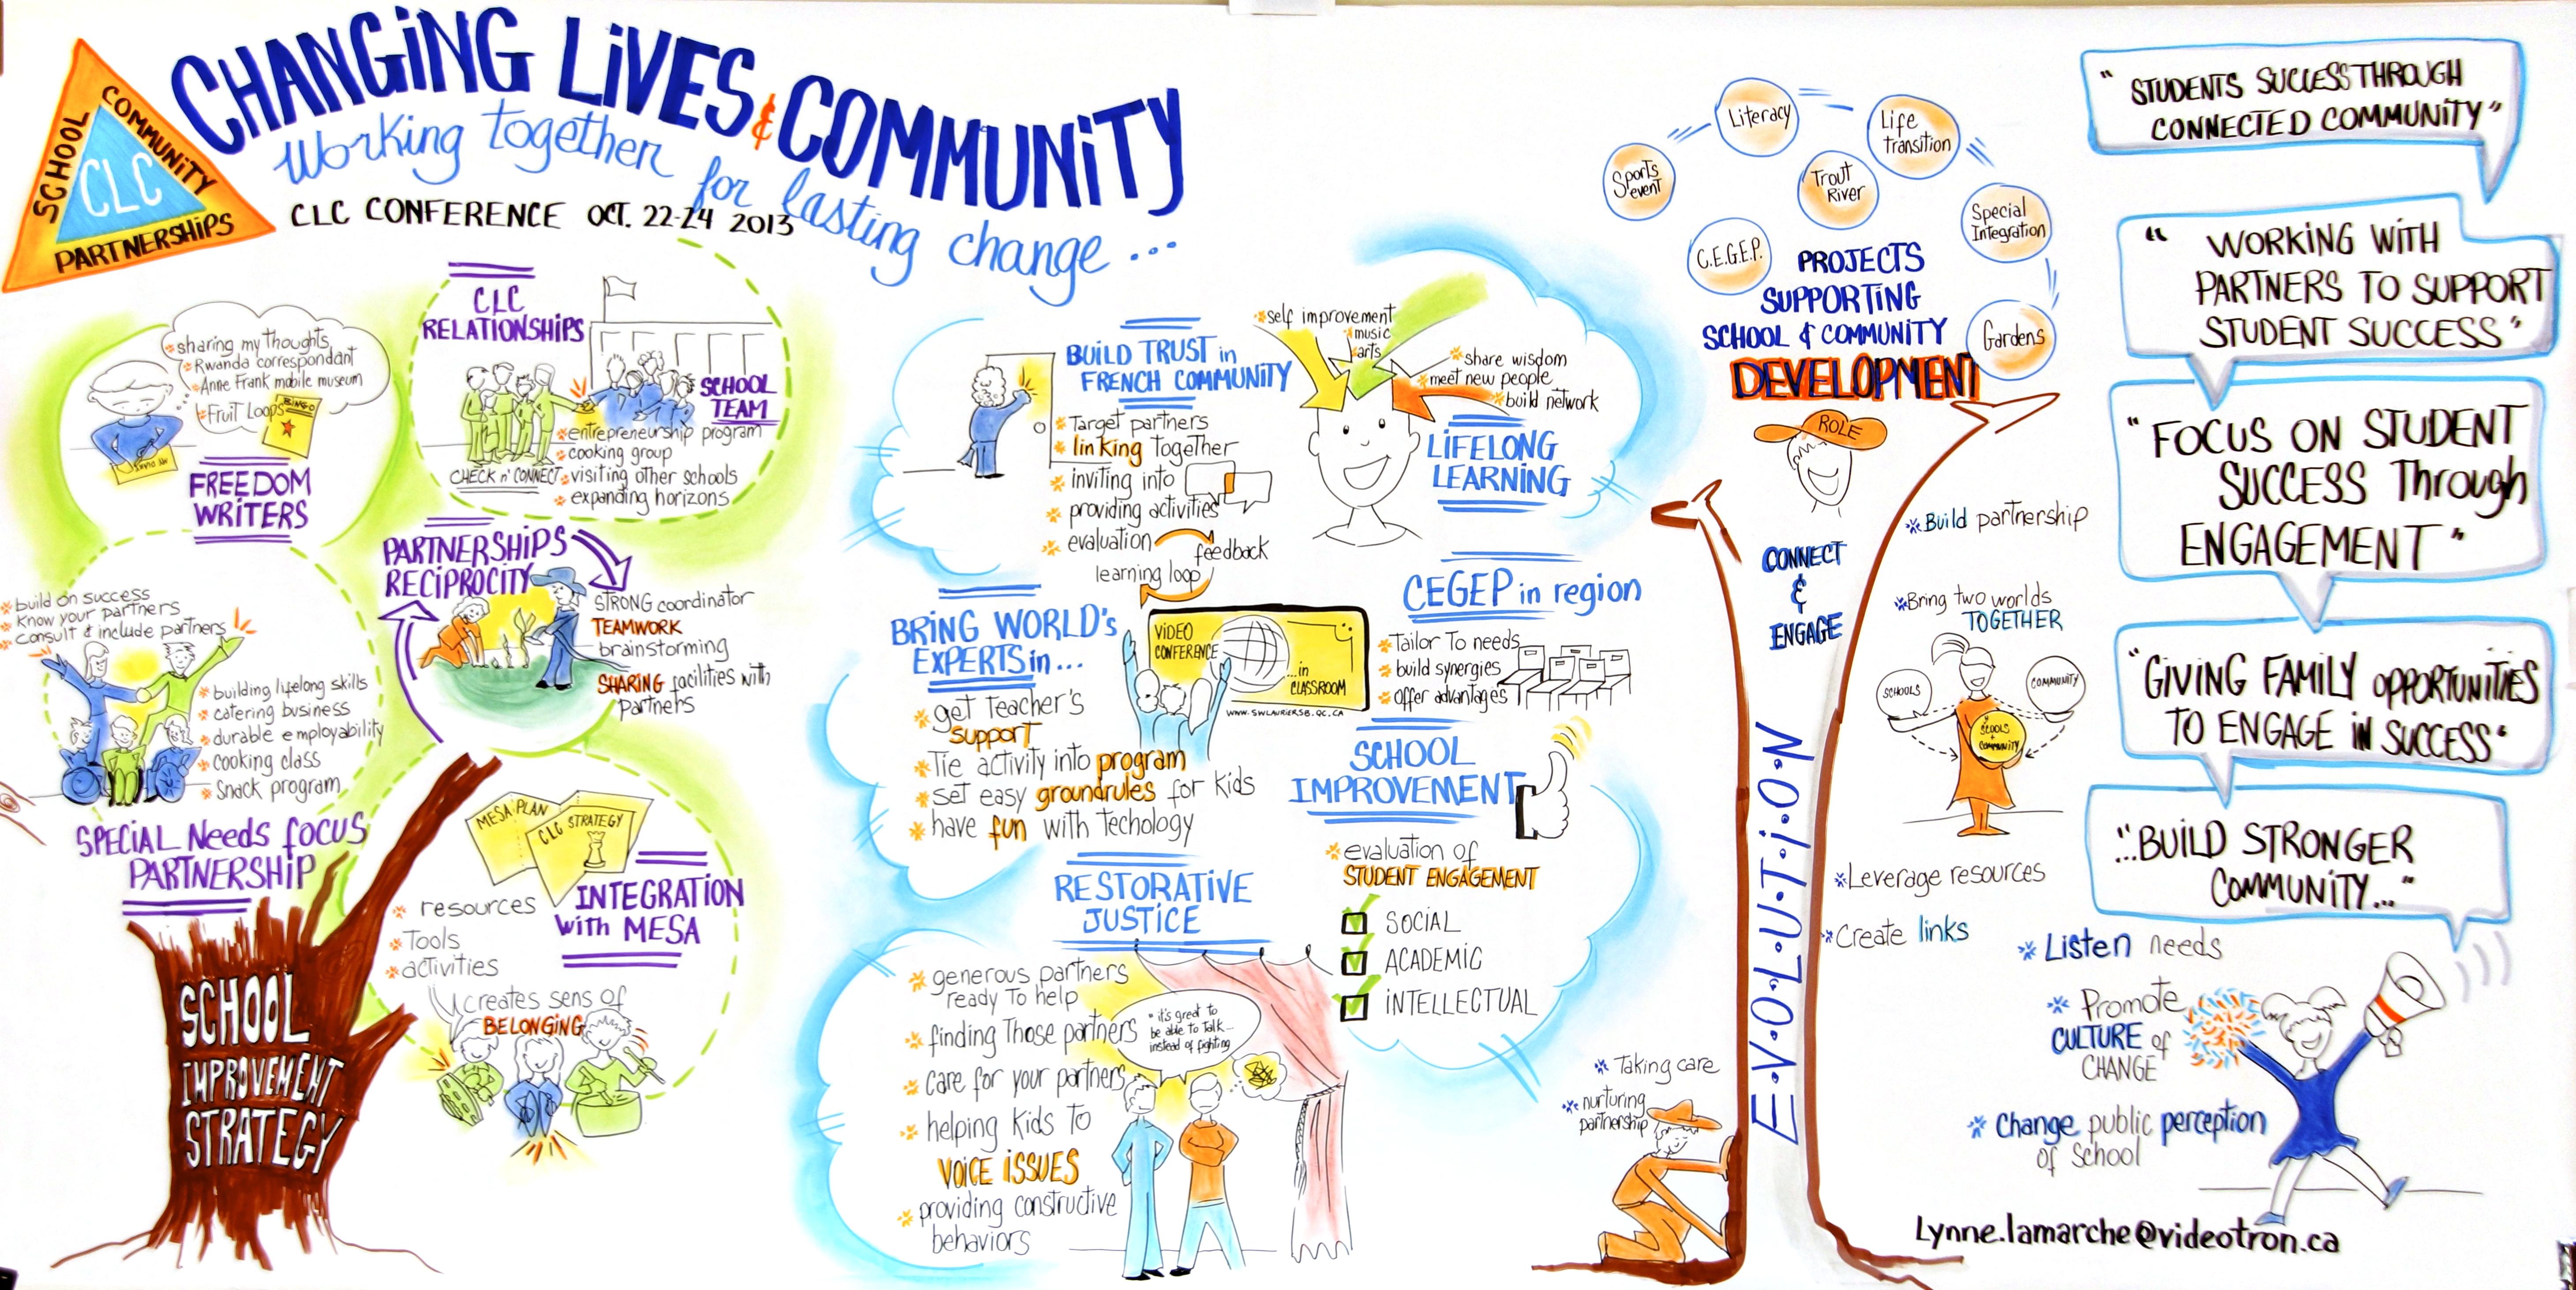 SCHOOL
COMMUNITY
PARTNERSHIPS
CLC
CHANGING LIVES & COMMUNITY
Working together for lasting change...
CLC CONFERENCE OCT. 22-24 2013
sharing my thoughts
Rwanda correspondant
Anne Frank mobile museum
Fruit Loops
BINGO
FREEDOM
WRITERS
CLC
RELATIONSHIPS
SCHOOL
TEAM
entrepreneurship program
cooking group
CHECK n' CONNECT
visiting other schools
expanding horizons
PARTNERSHIPS
RECIPROCITY
STRONG coordinator
TEAMWORK
brainstorming
SHARING facilities with
partners
build on success
Know your partners
consult & include partners
building lifelong skills
catering business
durable employability
cooking class
Snack program
SPECIAL Needs focus
PARTNERSHIP
MESA PLAN
CLC STRATEGY
INTEGRATION
with MESA
resources
Tools
activities
creates sens of
BELONGING
SCHOOL
IMPROVEMENT
STRATEGY
BUILD TRUST in
FRENCH COMMUNITY
Target partners
linking together
inviting into
providing activities
evaluation
feedback
learning loop
self improvement
music
arts
share wisdom
meet new people
build network
LIFELONG
LEARNING
BRING WORLD's
EXPERTS in...
get teacher's
support
Tie activity into program
set easy groundrules for kids
have fun with techology
VIDEO
CONFERENCE
...in
CLASSROOM
www.swlauriersb.qc.ca
CEGEP in region
Tailor To needs
build synergies
offer advantages
SCHOOL
IMPROVEMENT
evaluation of
STUDENT ENGAGEMENT
SOCIAL
ACADEMIC
INTELLECTUAL
RESTORATIVE
JUSTICE
generous partners
ready To help
finding Those partners
care for your partners
helping Kids to
VOICE ISSUES
providing constructive
behaviors
"it's great to
be able to talk...
instead of fighting
Sports
event
Literacy
Life
transition
Trout
River
Special
Integration
C.E.G.E.P.
Gardens
PROJECTS
SUPPORTING
SCHOOL & COMMUNITY
DEVELOPMENT
ROLE
CONNECT
&
ENGAGE
E.V.O.L.U.T.I.O.N
Build partnership
Bring two worlds
TOGETHER
SCHOOLS
COMMUNITY
SCOOLS
+
COMMUNITY
Leverage resources
Create links
Taking care
nurturing
partnership
"STUDENTS SUCCESS THROUGH
CONNECTED COMMUNITY"
"WORKING WITH
PARTNERS TO SUPPORT
STUDENT SUCCESS"
"FOCUS ON STUDENT
SUCCESS Through
ENGAGEMENT"
"GIVING FAMILY OPPORTUNITIES
TO ENGAGE IN SUCCESS"
"...BUILD STRONGER
COMMUNITY..."
Listen needs
Promote
CULTURE of
CHANGE
Change public perception
of school
Lynne.lamarche@videotron.ca